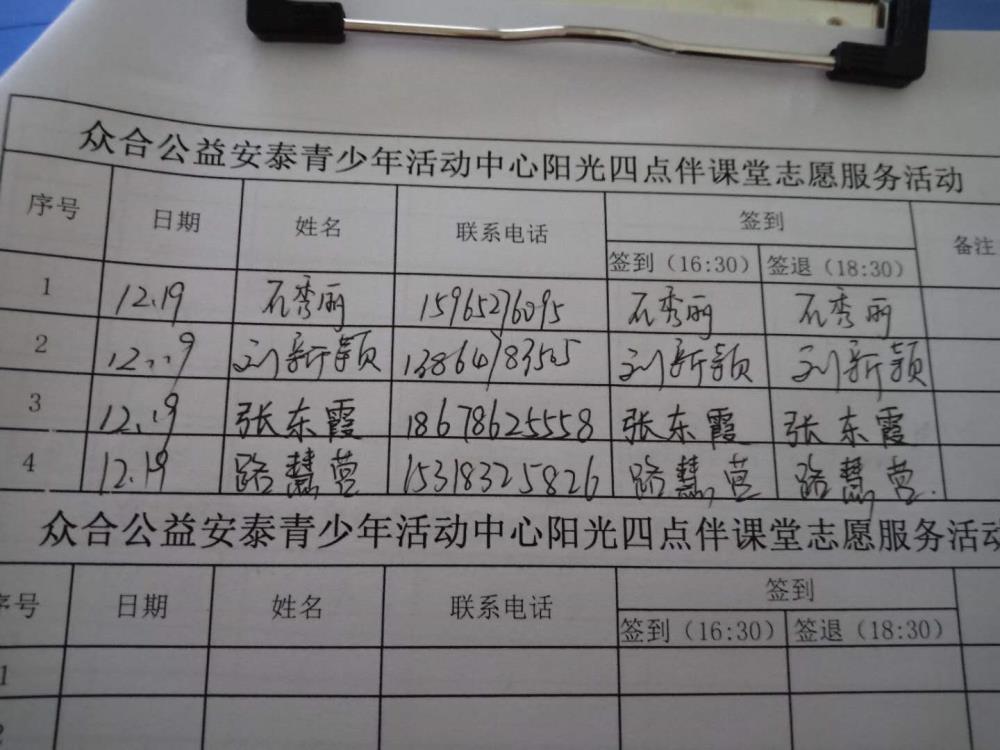 众合公益安泰青少年活动中心阳光四点伴课堂志愿服务活动
序号 日期 姓名 联系电话 签到 备注
签到（16:30） 签退（18:30）
1 12.19 石秀丽 15965276095 石秀丽 石秀丽
2 12.19 刘新颖 刘新颖 刘新颖
3 12.19 张东霞 18678625558 张东霞 张东霞
4 12.19 路慧莹 15318325826 路慧莹 路慧莹
众合公益安泰青少年活动中心阳光四点伴课堂志愿服务活动
序号 日期 姓名 联系电话 签到
签到（16:30） 签退（18:30）
1
2